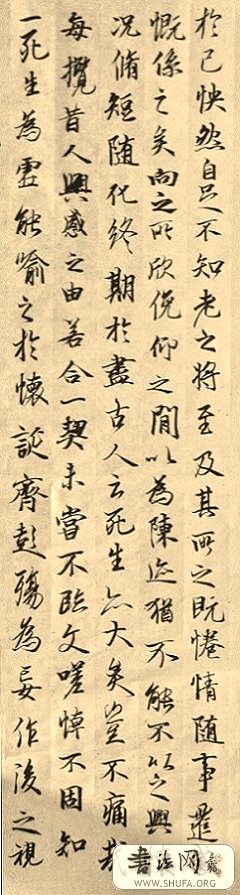 於己快然自足不知老之将至及其所之既惓情随事遷
慨係之矣向之所欣俛仰之間以為陳迹猶不能不以之興
况脩短随化終期於盡古人云死生亦大矣豈不痛哉
每攬昔人興感之由合一契未嘗不臨文嗟悼不固知
一死生為虛能喻之於懷誕齊彭殤為妄作後之視
書法网
WWW.SHUFA.ORG